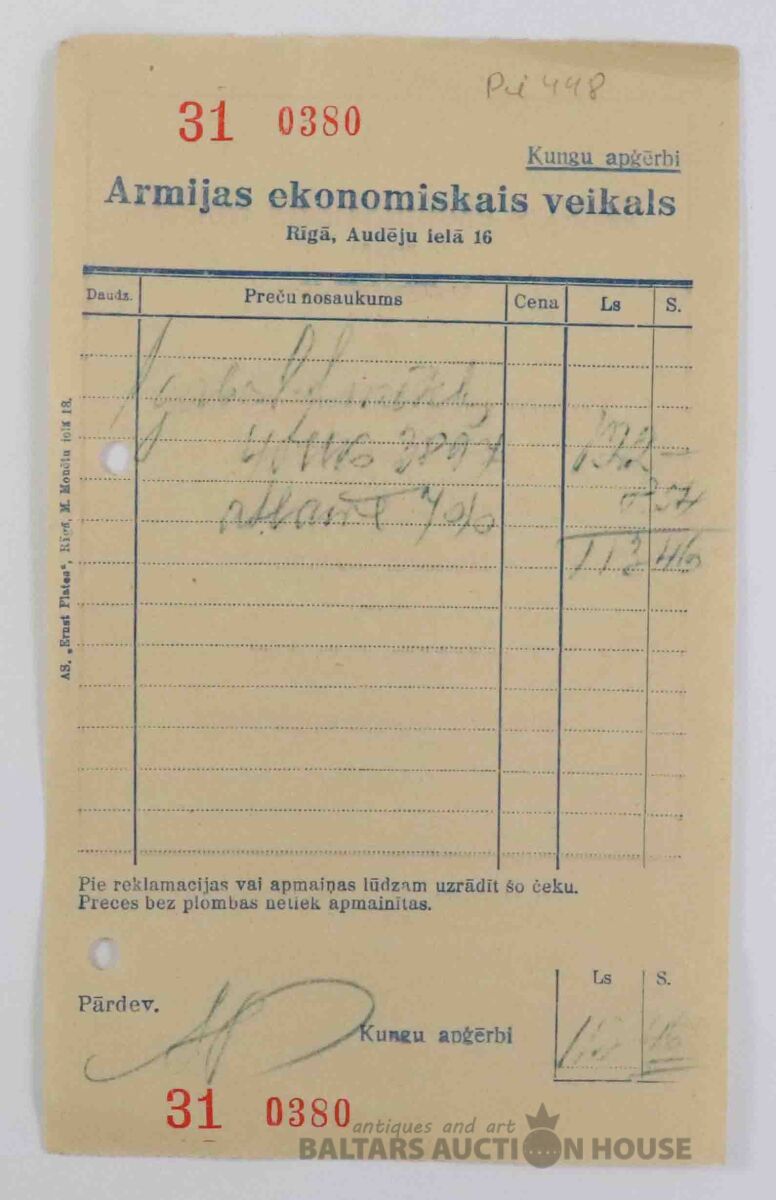 Pie 448
31 0380
Kungu apģērbi
Armijas ekonomiskais veikals
Rīgā, Audēju ielā 16
Daudz. Preču nosaukums Cena Ls S.
122 –
atlaide 7%
8 54
113 46
AS. „Ernst Plates“, Rīgā, M. Monētu ielā 18.
Pie reklamacijas vai apmaiņas lūdzam uzrādīt šo čeku.
Preces bez plombas netiek apmainītas.
Ls S.
Pārdev.
Kungu apģērbi
113 46
31 0380
antiques and art
BALTARS AUCTION HOUSE